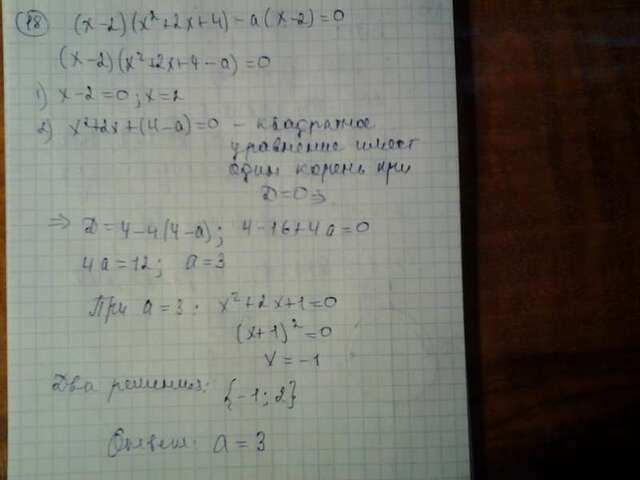 98 (x-2)(x²+2x+4)-a(x-2)=0
(x-2)(x²+2x+4-a)=0
1) x-2=0; x=2
2) x²+2x+(4-a)=0 - квадратное
уравнение имеет
один корень при
D=0 ⇒
⇒ D=4-4(4-a); 4-16+4a=0
4a=12; a=3
При a=3: x²+2x+1=0
(x+1)²=0
x=-1
Два решения: {-1; 2}
Ответ: a=3